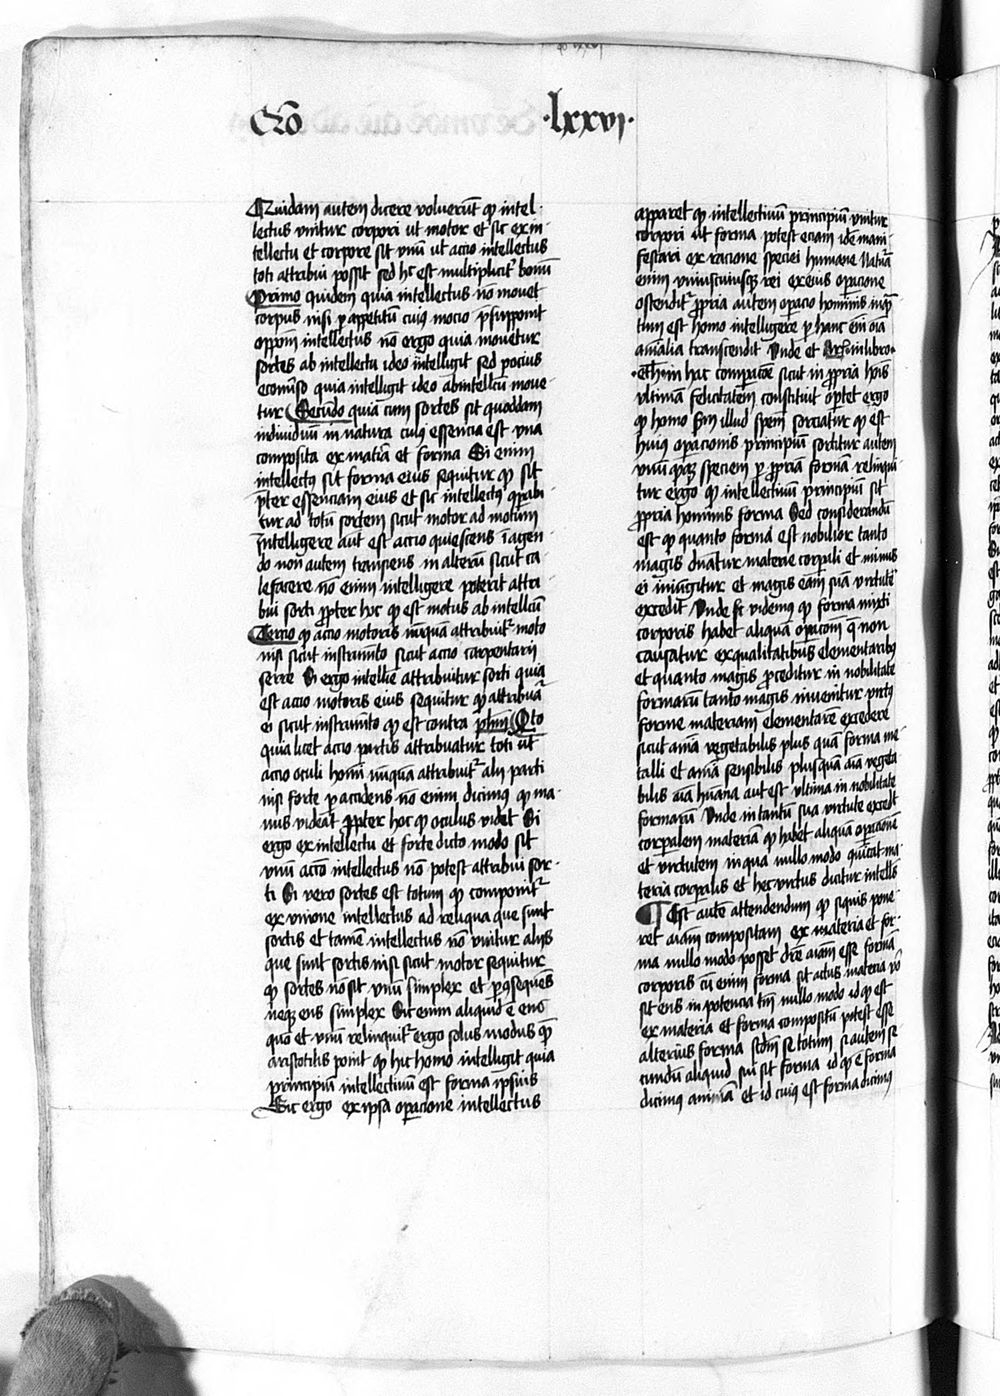 Qo̅ ·lxxvj·
Quidam autem dicere voluerūt qꝫ intel-
lectus vnitur corpori ut motor et sic ex in-
tellectu et corpore sit vnū ut actio intellectus
toti attribui possit sed hͦ est multiplicit̉ vanū
Primo quidem quia intellectus nō mouet
corpus nisi ꝑ appetitū cuiꝰ mocio p̄supponit
oꝑacōm intellectus nō ergo quia mouetur
sortes ab intellectu ideo intelligit sed pocius
econūso quia intelligit ideo ab intellcū moue-
tur Secūdo quia cum sortes sit quoddam
indiuiduū in natura cuiꝰ essencia est vna
composita ex matīa et forma Si enim
intellectꝰ sit forma eius sequitur qꝫ sit
p̄ter essenciam eius et sic intellectꝰ cōꝑabi-
tur ad totū sortem sicut motor ad motum
Intelligere aūt est actio quiescens ī agen-
do non autem transiens in alterū sicut ca-
lefacere nō enim intelligere poterit attri-
bui sorti ꝓpter hoc qꝫ est motus ab intellcū
Tercio qꝫ actio motoris nūquā attribuit̉ moto
nisi sicut instrumēto sicut actio carpentarij
serre Si ergo intellīe attribuitur sorti quia
est actio motoris eius sequitur qꝫ attribuāt̉
ei sicut instrumēto qꝫ est contra ph̄m Q̊to
quia licet actio partis attribuatur toti ut
actio oculi homī nūquā attribuit̉ alij parti
nisi forte ꝑ accidens nō enim dicimꝰ qꝫ ma-
nus videāt ꝓpter hoc qꝫ oculus videt Si
ergo ex intellectu et sorte dicto modo sit
vnū actō intellectus nō potest attribui sor-
ti Si vero sortes est totum qꝫ componit̉
ex vnione intellectus ad reliqua que sunt
sortis et tamē intellectus nō vnitur alijs
que sunt sortis nisi sicut motor sequitur
qꝫ sortes nō sit vnū simplex et ꝑ ꝯsequēs
neqꝫ ens simplex Sic enim aliquid ē ens
quo et vnū relinquit̉ ergo solus modus quē
aristotilis ponit qꝫ hic homo intelligit quia
principiū intellectiuū est forma ipsius
Sic ergo ex ipsa oꝑacione intellectus
apparet qꝫ intellectiuū principiū vnitur
corpori ut forma potest eciam idē mani-
festari ex racione speciei humane Natura
enim vniuscuiusqꝫ rei ex eius oꝑacione
ostendit̉ ꝓpria autem oꝑacio hominis inqꝫ-
tum est homo intelligere ꝑ hanc eni oīa
animalia transcendit Vnde et Ar̄ in libro
Ethic̄ in hac comꝑacōe sicut in ꝓpria hoīs
vltimā felicitatem constituit oportet ergo
qꝫ homo sm̄ illud speēm sorciatur qꝫ est
huiꝰ oꝑacionis principiū sortitur autem
vnū qꝫqꝫ speciem ꝑ ꝓpriā formā relinqui-
tur ergo qꝫ intellectiuū principiū sit
ꝓpria hominis forma Sed considerandū
est qꝫ quanto forma est nobilior tanto
magis dn̄atur materie corꝑali et minus
ei inmergitur et magis eam sua virtute
excedit Vnde sc̄ videmꝰ qꝫ forma mixti
corporis habet aliquā oꝑacōm q̄ non
causatur ex qualitatibꝰ elementaribꝰ
et quanto magis proceditur in nobilitate
formarū tanto magis inuenitur virtꝰ
forme materiam elementarē excedere
sicut aīma vegetabilis plus quā forma me-
talli et aīma sensibilis plus quā aīa vegeta-
bilis aīa hūana aut est vltima in nobilitate
formarū Vnde in tantū sua virtute excedit
corꝑalem materiā qꝫ habet aliquā oꝑacionē
et virtutem in qua nullo modo ꝯmūicat ma-
teria corꝑalis et hec virtus dicitur intellūs
¶ Est autē attendendum qꝫ siquis pone-
ret aīam compositam ex materia et for-
ma nullo modo posset dicē aīam esse formā
corporis cū enim forma sit actus materia vō
sit ens in potencia tm̄ nullo modo id qꝫ est
ex materia et forma compositū potest esse
alterius forma scdm̄ se totum si autem se-
cundū aliquid sui sit forma id qꝫ ē forma
dicimꝰ animā et id cuiꝰ est forma dicimꝰ